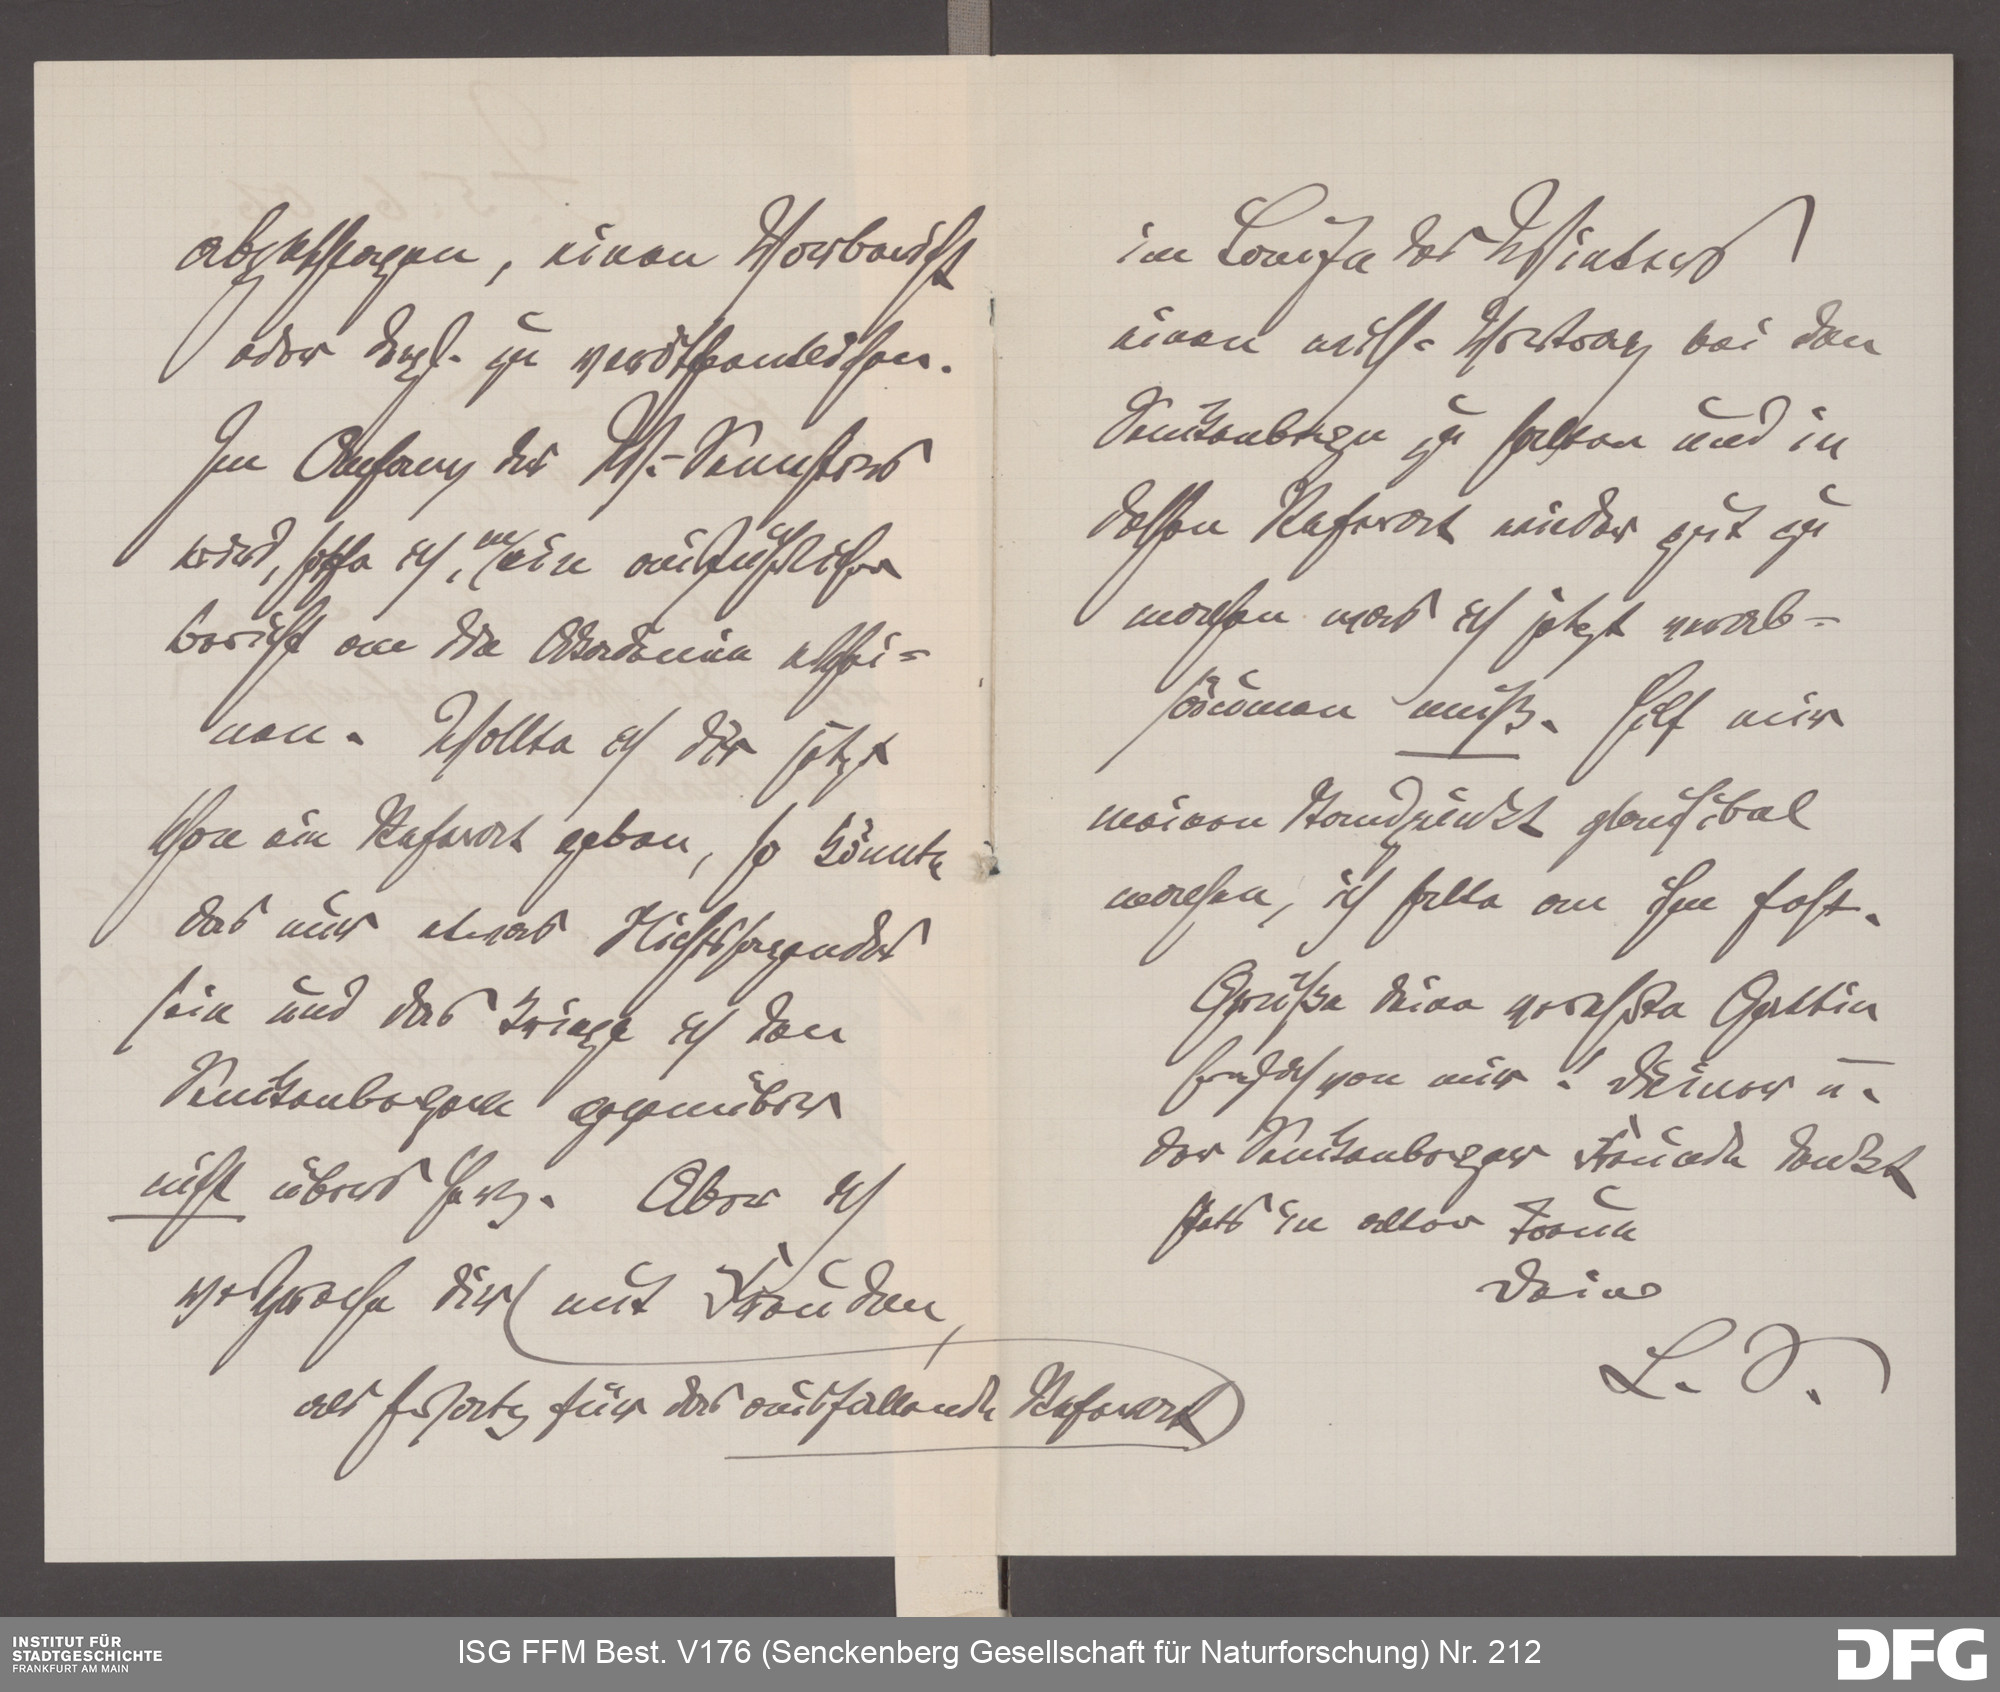 abzuschlagen, einen Vorbericht
oder dergl. zu veröffentlichen.
Im Anfang des W.-Semesters
wird, hoffe ich, mein ausführlicher
Bericht an die Akademie erschei-
nen. Wollte ich dir jetzt
schon ein Referat geben, so könnte
das nur etwas Nichtssagendes
sein und das bringe ich den
Senckenbergern gegenüber
nicht übers Herz. Aber ich
verspreche dir mit Freuden,
als Ersatz für das ausfallende Referat
im Laufe des Winters
einen wiss. Vortrag bei den
Senckenbergern zu halten und in
dessen Referat wieder gut zu
machen was ich jetzt verab-
säumen muß. Hilf mir
meinen Standpunkt plausibel
machen, ich halte an ihm fest.
Grüße deine verehrte Gattin
herzlich von mir! Deiner u.
der Senckenberger Freunde denkt
stets in alter Treue
Dein
L. S.
INSTITUT FÜR
STADTGESCHICHTE
FRANKFURT AM MAIN
ISG FFM Best. V176 (Senckenberg Gesellschaft für Naturforschung) Nr. 212
DFG